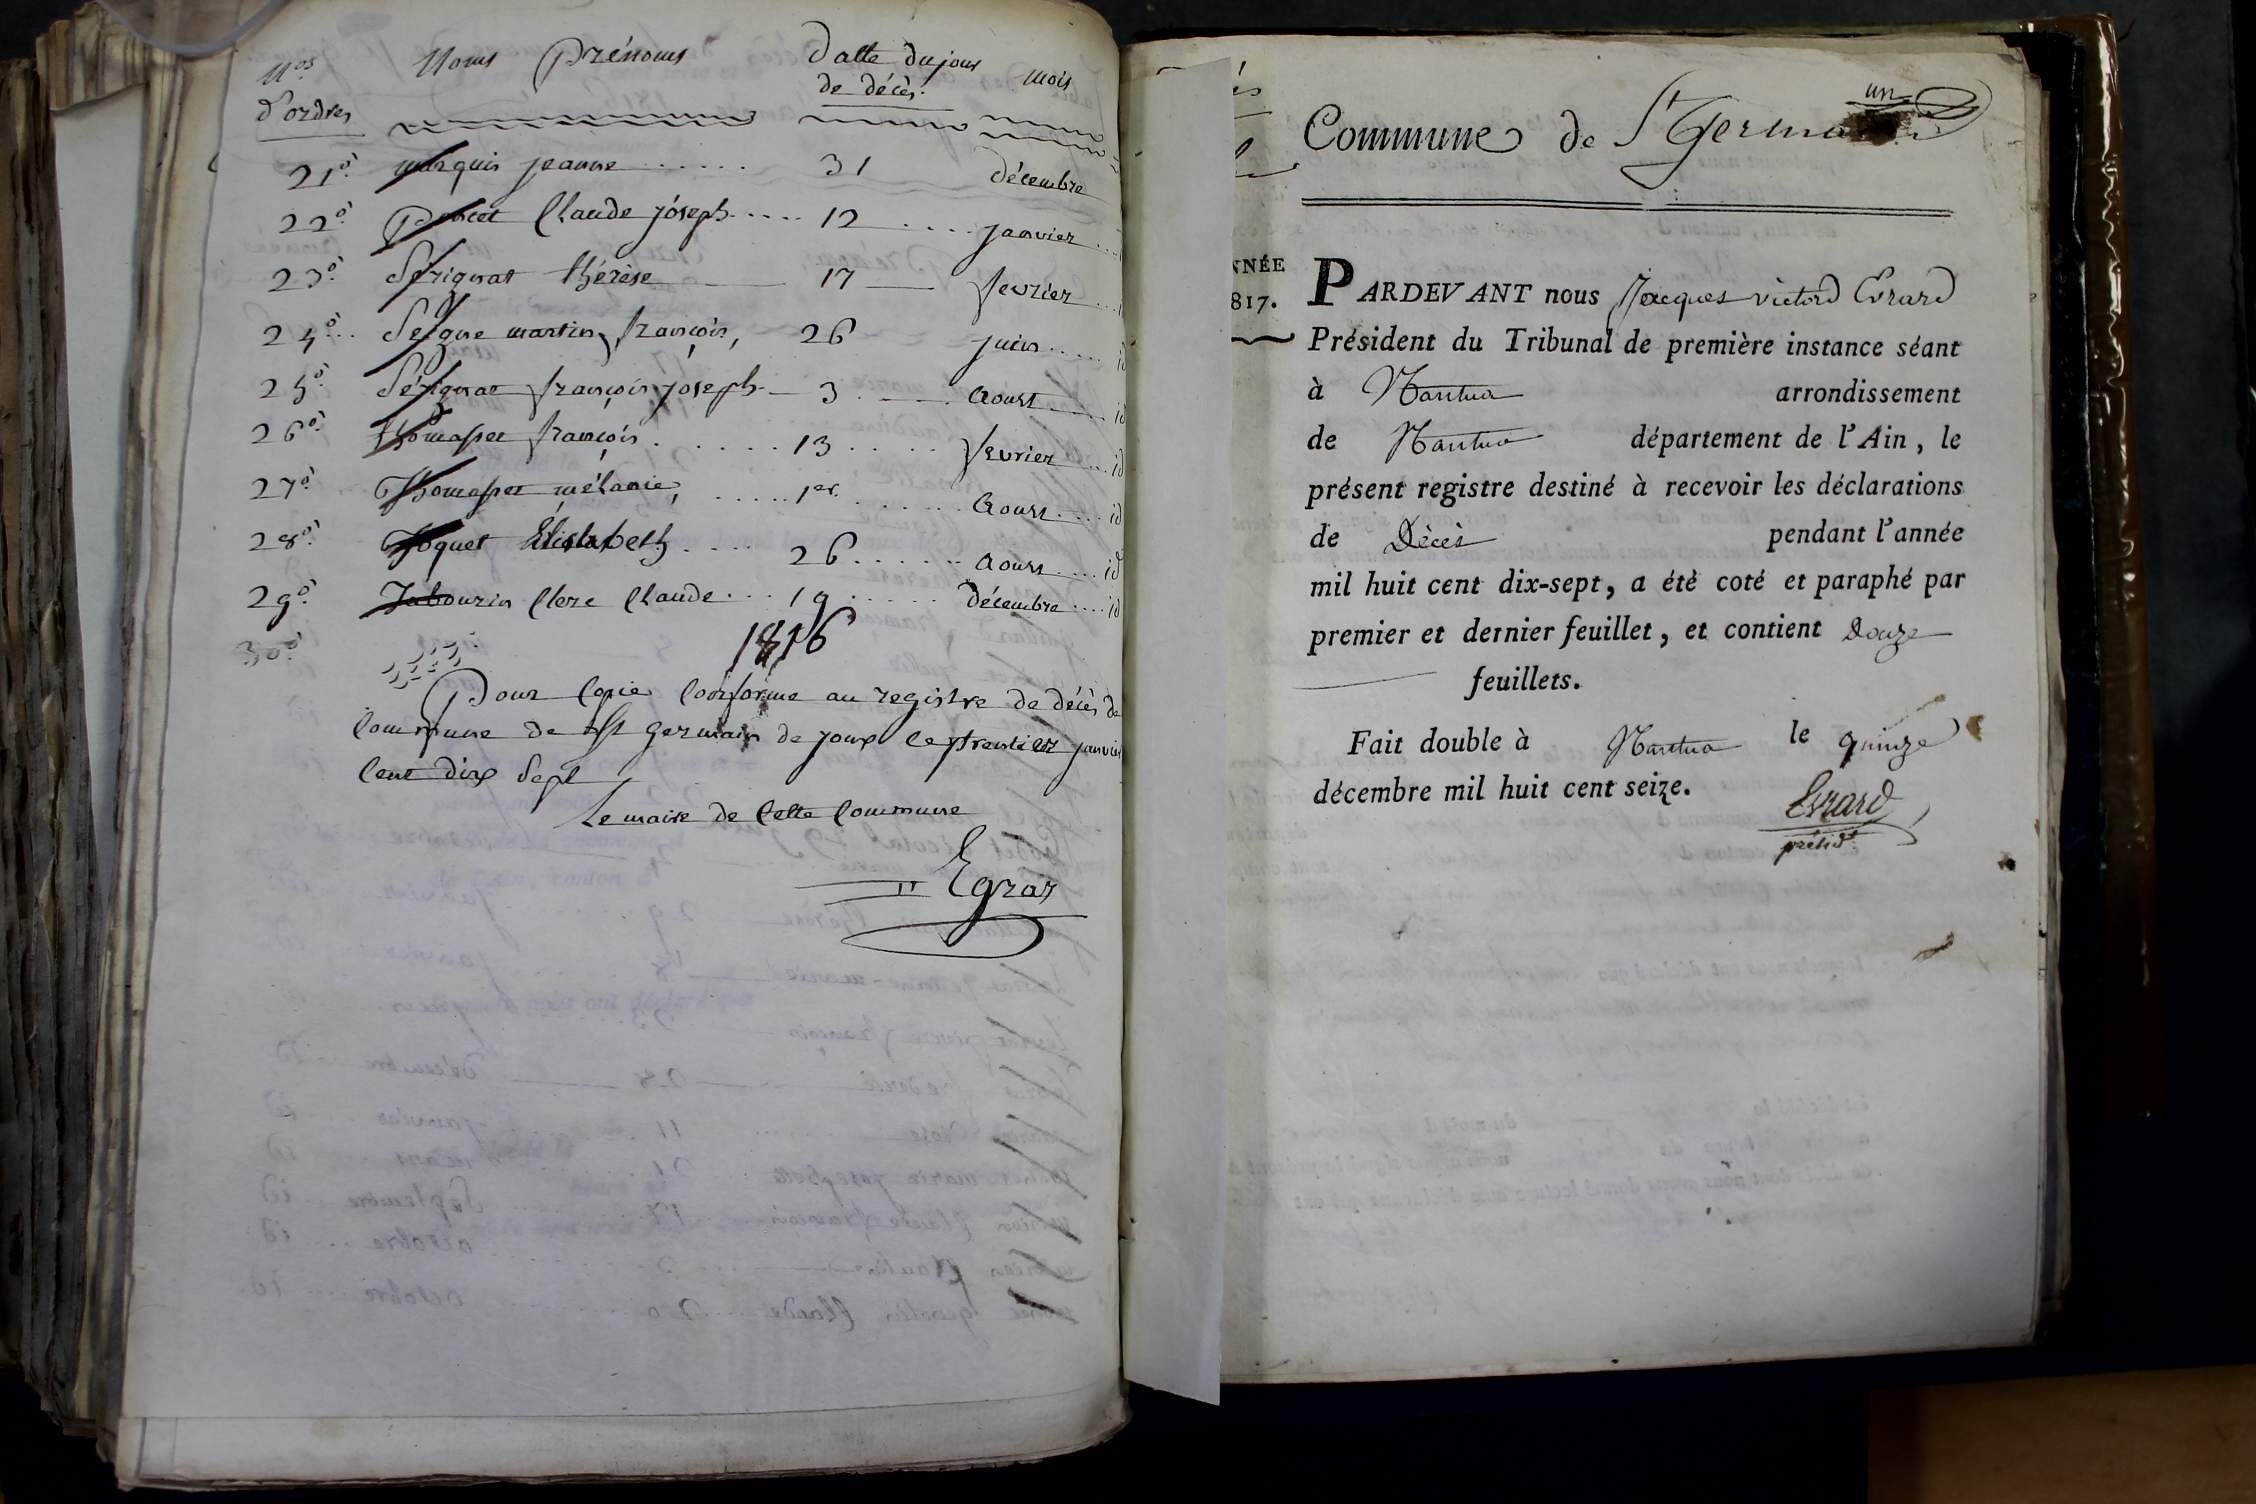 Nos Noms Prénoms Datte du jour mois
d'ordres de décès.
21° marquis jeanne ...... 31 décembre
22° Poncet Claude joseph ..... 12 .... janvier
23° Sérignat thérèse 17 fevrier
24° Seigne martin françois, 26 juin
25° Sérignat françois joseph 3 Aoust id
26° thomasset françois ..... 13 ..... fevrier ... id
27° Thomasset mélanie, ..... 1er ...... Aoust .... id
28° Élisabeth .... 26 ...... Aoust .... id
29° Tabourin Claude ... 19 ...... décembre .... id
30°
1816
Pour Copie Conforme au registre de décès de
Commune de St germain de joux le trente janvier
Cent dix Sept
Le maire de Cette Commune
Egraz
un
Commune de St Germain
NNÉE
817.
PARDEVANT nous Jacques victord Evrard
Président du Tribunal de première instance séant
à Nantua arrondissement
de Nantua département de l'Ain, le
présent registre destiné à recevoir les déclarations
de Décès pendant l'année
mil huit cent dix-sept, a été coté et paraphé par
premier et dernier feuillet, et contient douze
feuillets.
Fait double à Nantua le quinze
décembre mil huit cent seize.
Evrard
présidt